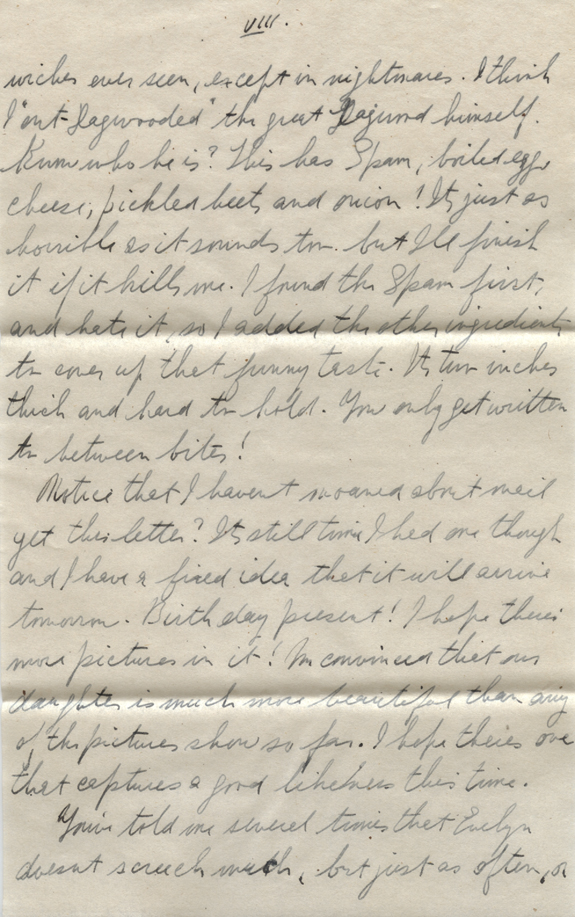 VIII.
wiches ever seen, except in nightmares. I think
I "out-Dagwooded" the great Dagwood himself.
Know who he is? This has Spam, boiled egg,
cheese, pickled beets and onion! Its just as
horrible as it sounds too. but I'll finish
it if it kills me. I found the Spam first,
and hate it, so I added the other ingredients
to cover up that funny taste. Its two inches
thick and hard to hold. You only get written
to between bites!
Notice that I havent moaned about mail
yet this letter? Its still time I had one though
and I have a fixed idea that it will arrive
tomorrow. Birthday present! I hope theres
more pictures in it! Im convinced that our
daughter is much more beautiful than any
of the pictures show so far. I hope theres one
that captures a good likeness this time.
Youve told me several times that Evelyn
doesnt screech much, but just as often, or